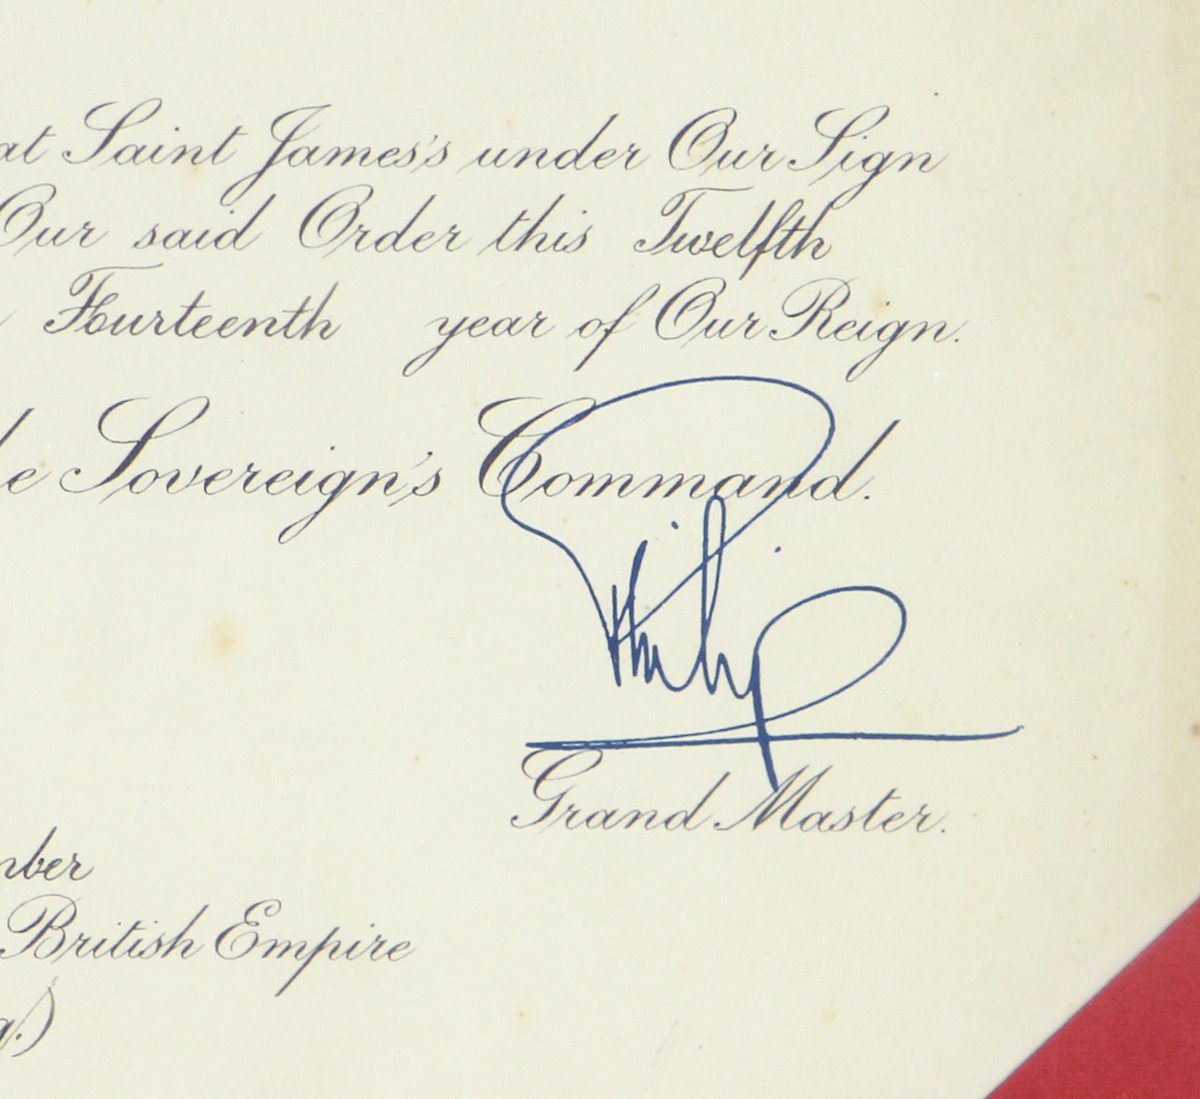 at Saint James's under Our Sign
Our said Order this Twelfth
Fourteenth year of Our Reign.
Sovereign's Command.
Philip
Grand Master.
British Empire